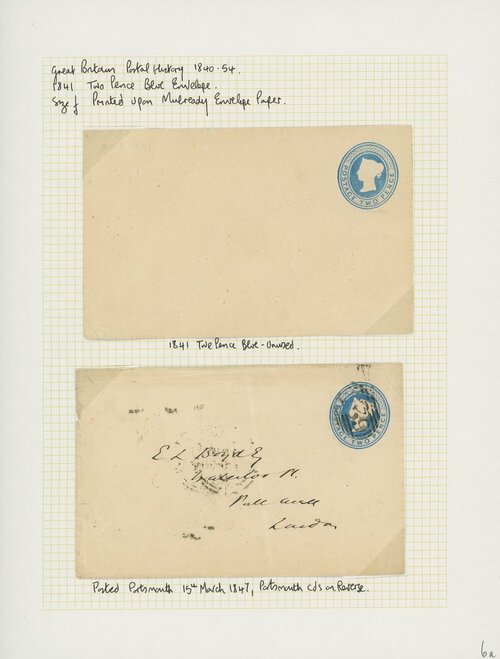 Great Britain Postal History 1840-54.
1841 Two Pence Blue Envelope.
Size f Printed upon Mulready Envelope Paper.
POSTAGE TWO PENCE
1841 Two Pence Blue - Unused.
POSTAGE TWO PENCE
E L Boyd Esq
Waterloo Pl.
Pall Mall
London
Posted Portsmouth 15th March 1847, Portsmouth cds on Reverse.
6a